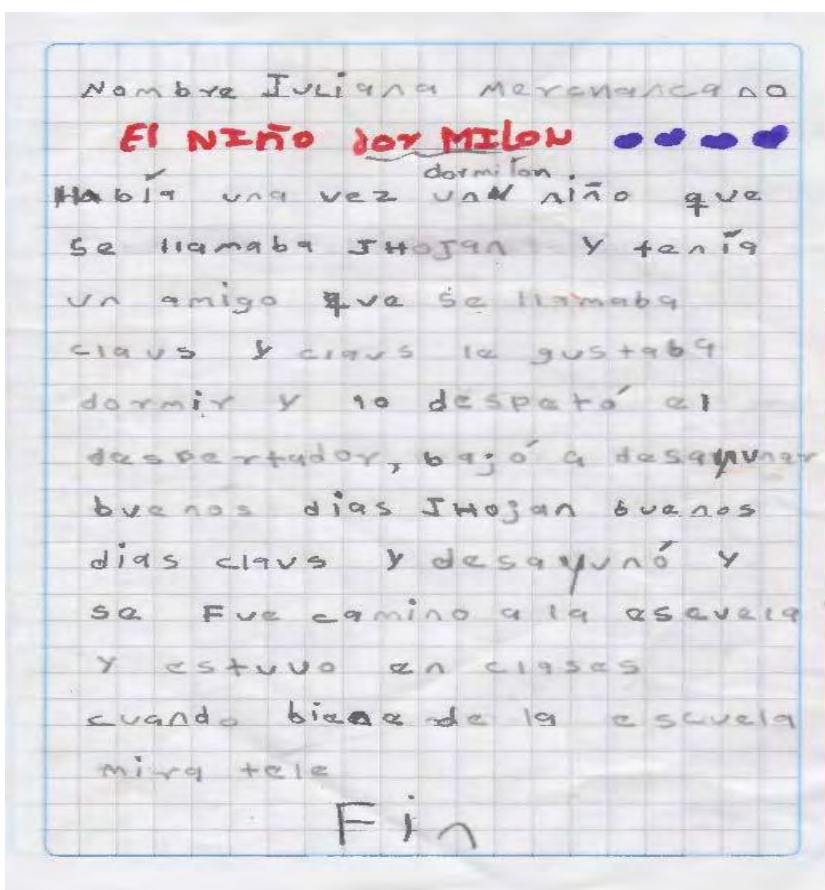 Nombre Iuliana Merchancano
El NIÑO dorMILON
dormilon.
Había una vez un niño que
se llamaba JHOJAN y tenía
un amigo que se llamaba
claus y claus le gustaba
dormir y lo despetó el
despertador, bajó a desayunar
buenos dias JHojan buenos
dias claus y desayunó y
se Fue camino a la escuela
y estuvo en clases
cuando biene de la escuela
mira tele
Fin